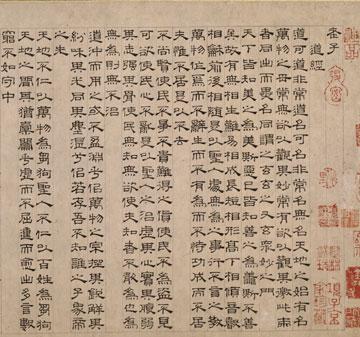 老子
道經
道可道非常道名可名非常名無名天地之始有名
萬物之母常無欲以觀其妙常有欲以觀其徼此兩
者同出而異名同謂之玄玄之又玄衆妙之門
天下皆知美之為美斯惡已皆知善之為善斯不善
矣故有無相生難易相成長短相形高下相傾音聲
相龢前後相隨是以聖人處無為之事行不言之教
萬物作焉而不辭生而不有為而不恃功成而不居
夫惟不居是以不去
不尚賢使民不爭不貴難得之貨使民不為盜不見
可欲使民心不亂是以聖人之治虛其心實其腹弱
其志強其骨常使民無知無欲使夫知者不敢為也為
無為則無不治
道沖而用之或不盈淵兮似萬物之宗挫其銳解其
紛和其光同其塵湛兮似若存吾不知誰之子象帝
之先
天地不仁以萬物為芻狗聖人不仁以百姓為芻狗
天地之間其猶橐籥乎虛而不屈動而愈出多言數
窮不如守中